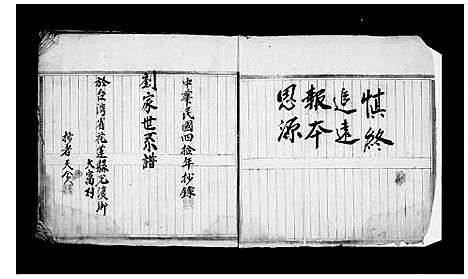 慎終
追遠
報本
思源
中華民國四拾年抄錄
劉家世系譜
於台湾省花蓮縣光復鄉
大富村
抄者天公